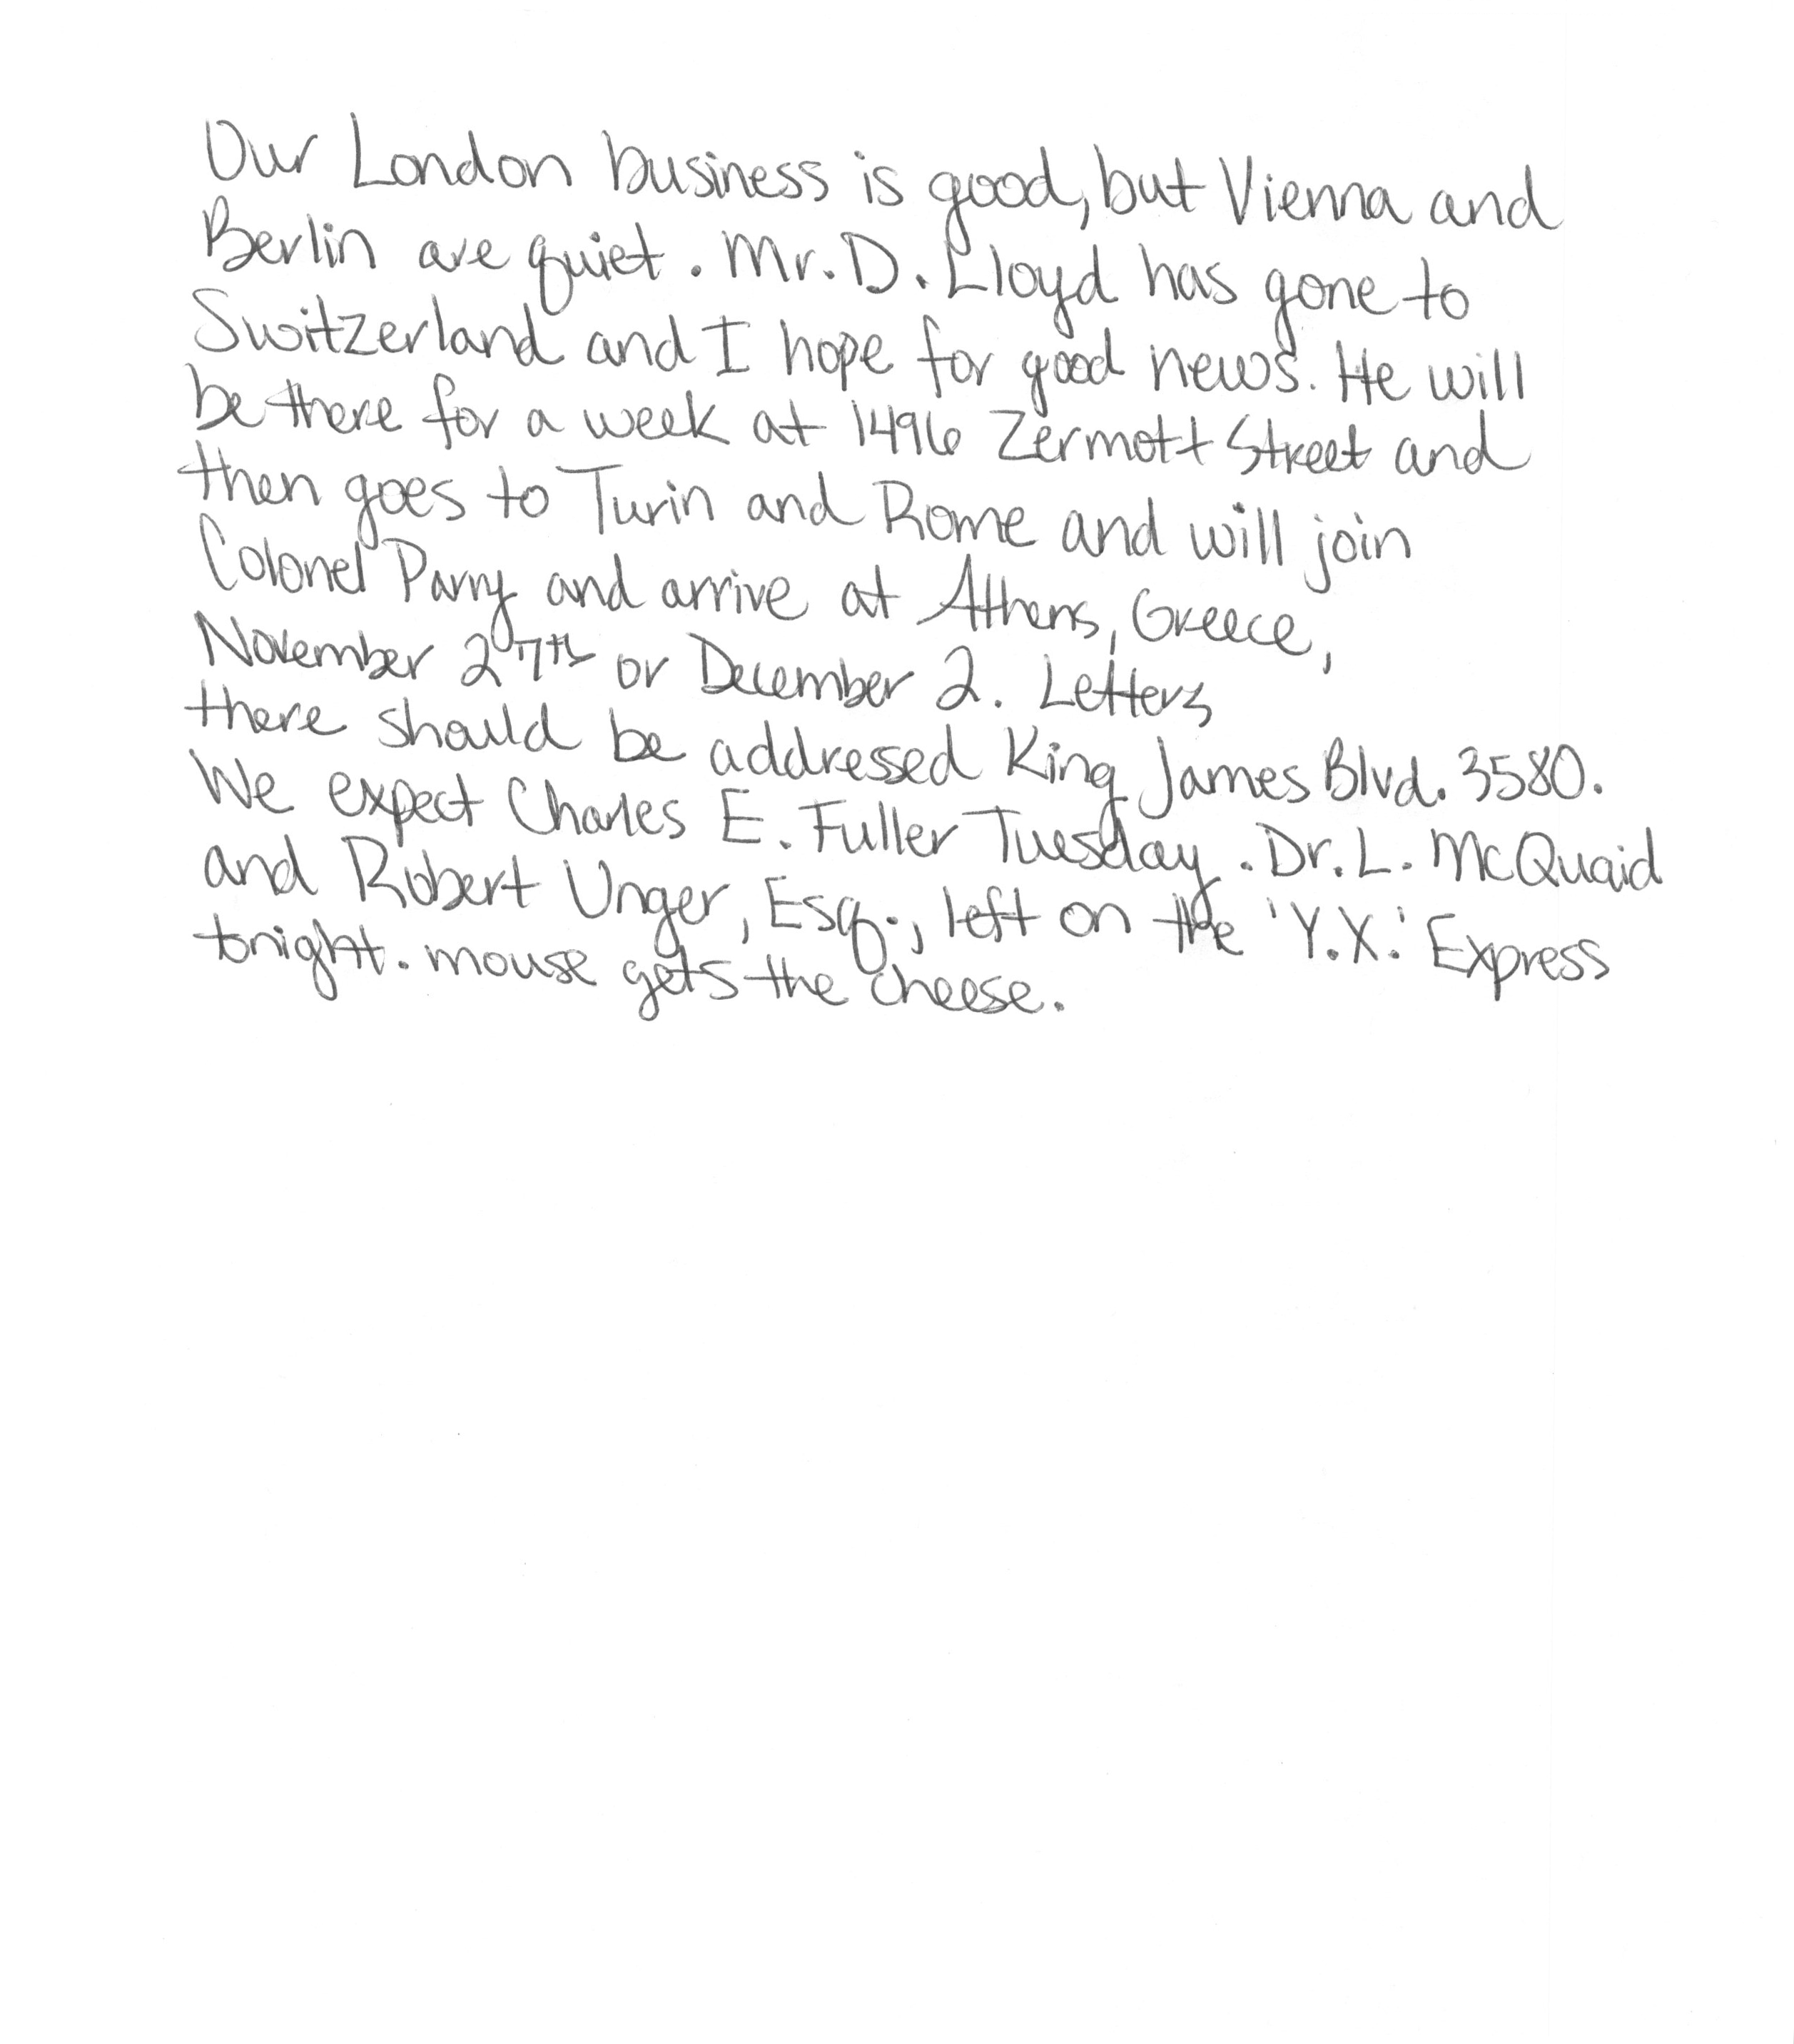 Our London business is good, but Vienna and
Berlin are quiet. Mr. D. Lloyd has gone to
Switzerland and I hope for good news. He will
be there for a week at 1496 Zermott Street and
then goes to Turin and Rome and will join
Colonel Parry and arrive at Athens, Greece,
November 27th or December 2. Letters
there should be addressed King James Blvd. 3580.
We expect Charles E. Fuller Tuesday. Dr. L. McQuaid
and Robert Unger, Esq., left on the 'Y.X.' Express
tonight. mouse gets the cheese.